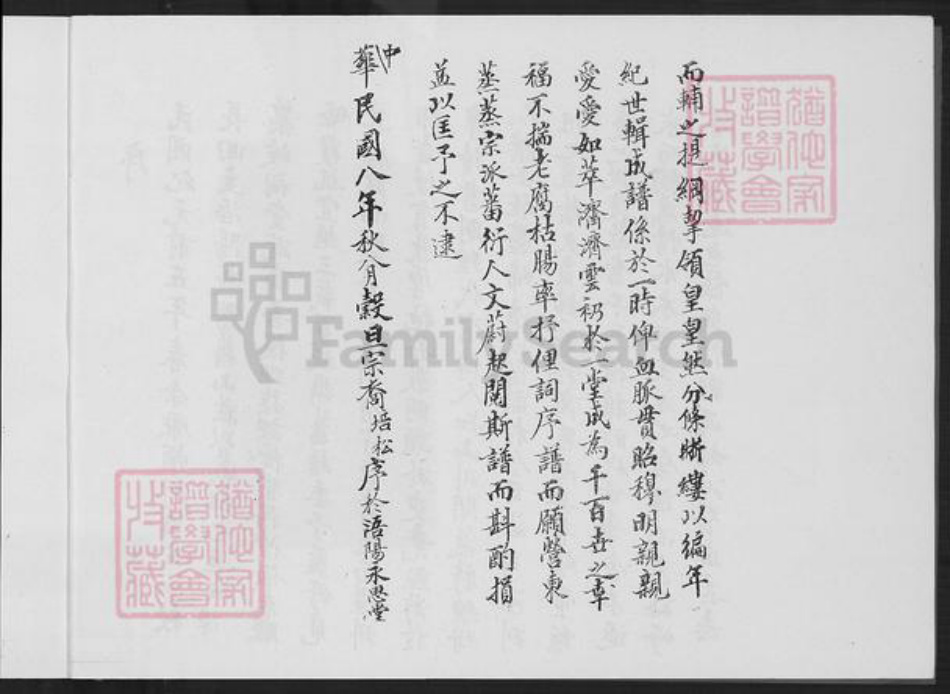 而輔之提綱挈領皇皇然分條晰縷以編年
紀世輯成譜係於一時俾血脈貫昭穆明親親
愛愛如萃濟濟雲礽於一堂成為千百世之幸
福不揣老腐枯腸率抒俚詞序譜而願營東
蒸蒸宗派蕃衍人文蔚起閱斯譜而斟酌損
益以匡予之不逮
中華民國八年秋八月穀旦宗裔培松序於浯陽永思堂
FamilySearch
譜學會
收藏
譜學會
收藏